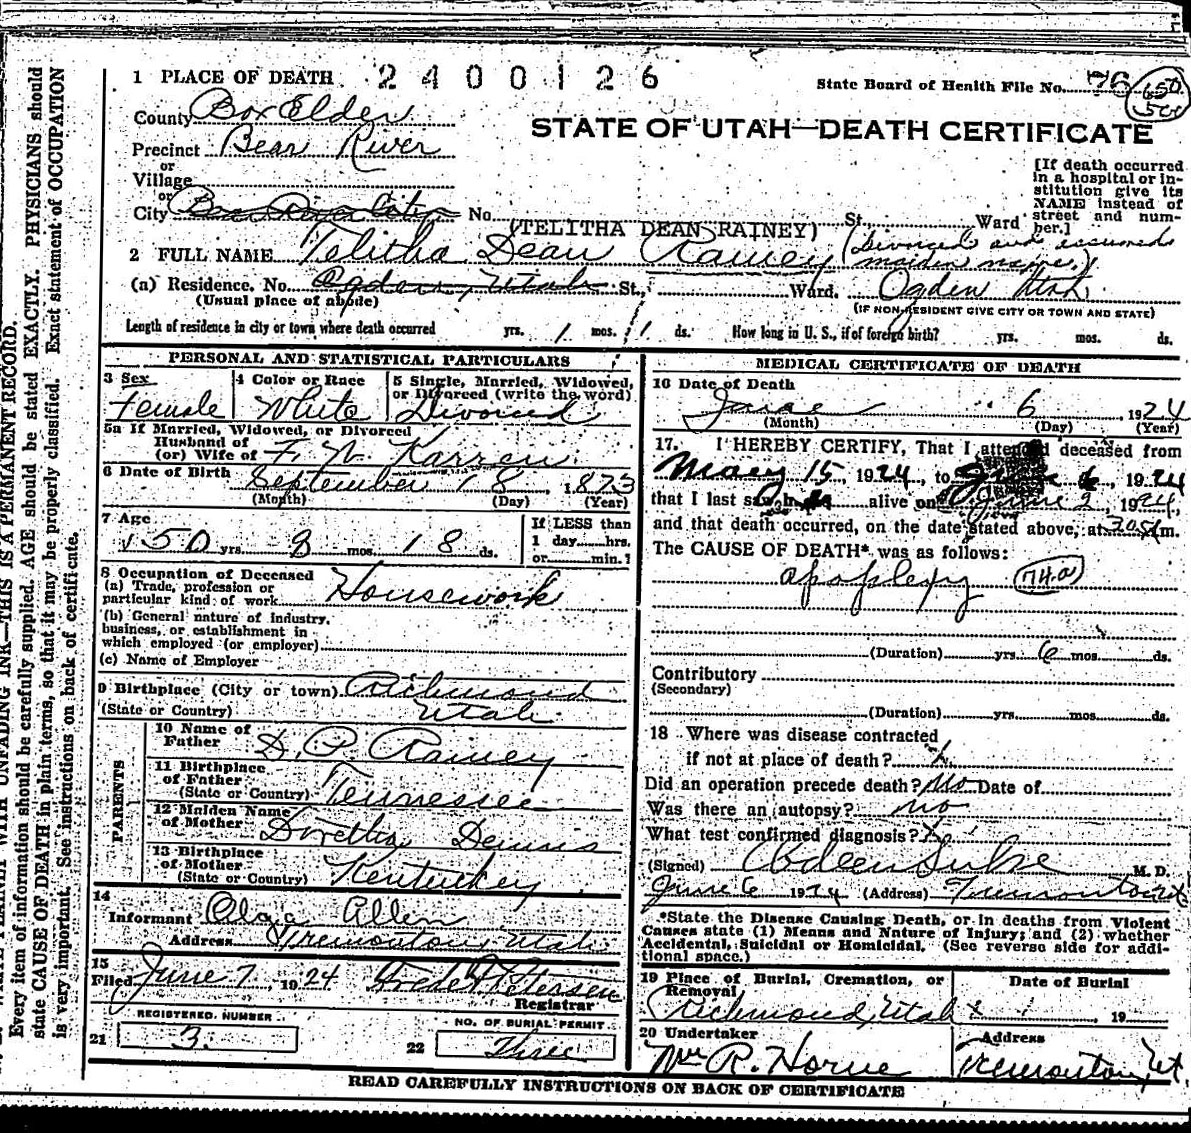 1 PLACE OF DEATH 2400126
State Board of Health File No. 76
County Box Elder
STATE OF UTAH—DEATH CERTIFICATE
Precinct Bear River
or
Village
or
City Bear River City No. St. Ward
[If death occurred
in a hospital or in-
stitution give its
NAME instead of
street and num-
ber.]
(TELITHA DEAN RAINEY)
2 FULL NAME Telitha Dean Rainey (divorced and assumed
maiden name.)
(a) Residence. No. Ogden, Utah St., Ward. Ogden Utah
(Usual place of abode)
(IF NON-RESIDENT GIVE CITY OR TOWN AND STATE)
Length of residence in city or town where death occurred yrs. 1 mos. 1 ds. How long in U. S., if of foreign birth? yrs. mos. ds.
PERSONAL AND STATISTICAL PARTICULARS
3 Sex
Female
4 Color or Race
White
5 Single, Married, Widowed,
or Divorced (write the word)
Divorced
5a If Married, Widowed, or Divorced
Husband of
(or) Wife of F. N. Karren
6 Date of Birth September 18, 1873
(Month) (Day) (Year)
7 Age
50 yrs. 8 mos. 18 ds.
If LESS than
1 day hrs.
or min.?
8 Occupation of Deceased
(a) Trade, profession or
particular kind of work Housework
(b) General nature of industry,
business, or establishment in
which employed (or employer)
(c) Name of Employer
9 Birthplace (City or town) Richmond
(State or Country) Utah
PARENTS
10 Name of
Father D. P. Rainey
11 Birthplace
of Father
(State or Country) Tennessee
12 Maiden Name
of Mother Doretha Dennis
13 Birthplace
of Mother
(State or Country) Kentuckey
14
Informant Olga Allen
Address Tremonton, Utah
15
Filed June 7, 1924 Petersen
Registrar
REGISTERED NUMBER
21 3.
NO. OF BURIAL PERMIT
22 Three
MEDICAL CERTIFICATE OF DEATH
16 Date of Death
June 6 1924
(Month) (Day) (Year)
17. I HEREBY CERTIFY, That I attended deceased from
May 15, 1924, to June 6, 1924
that I last saw h alive on June 2, 1924,
and that death occurred, on the date stated above, at m.
The CAUSE OF DEATH* was as follows:
apoplexy 74a
(Duration) yrs 6 mos. ds.
Contributory
(Secondary)
(Duration) yrs. mos. ds.
18 Where was disease contracted
if not at place of death?
Did an operation precede death? No Date of
Was there an autopsy? no
What test confirmed diagnosis?
(Signed) M. D.
June 6 1924 (Address) Tremonton Ut
*State the Disease Causing Death, or in deaths from Violent
Causes state (1) Means and Nature of Injury; and (2) whether
Accidental, Suicidal or Homicidal. (See reverse side for addi-
tional space.)
19 Place of Burial, Cremation, or
Removal
Richmond, Utah
Date of Burial
, 19
20 Undertaker
Wm R. Horne
Address
Tremonton, Ut
READ CAREFULLY INSTRUCTIONS ON BACK OF CERTIFICATE
WITH UNFADING INK—THIS IS A PERMANENT RECORD.
Every item of information should be carefully supplied. AGE should be stated EXACTLY. PHYSICIANS should
state CAUSE OF DEATH in plain terms, so that it may be properly classified. Exact statement of OCCUPATION
is very important. See instructions on back of certificate.